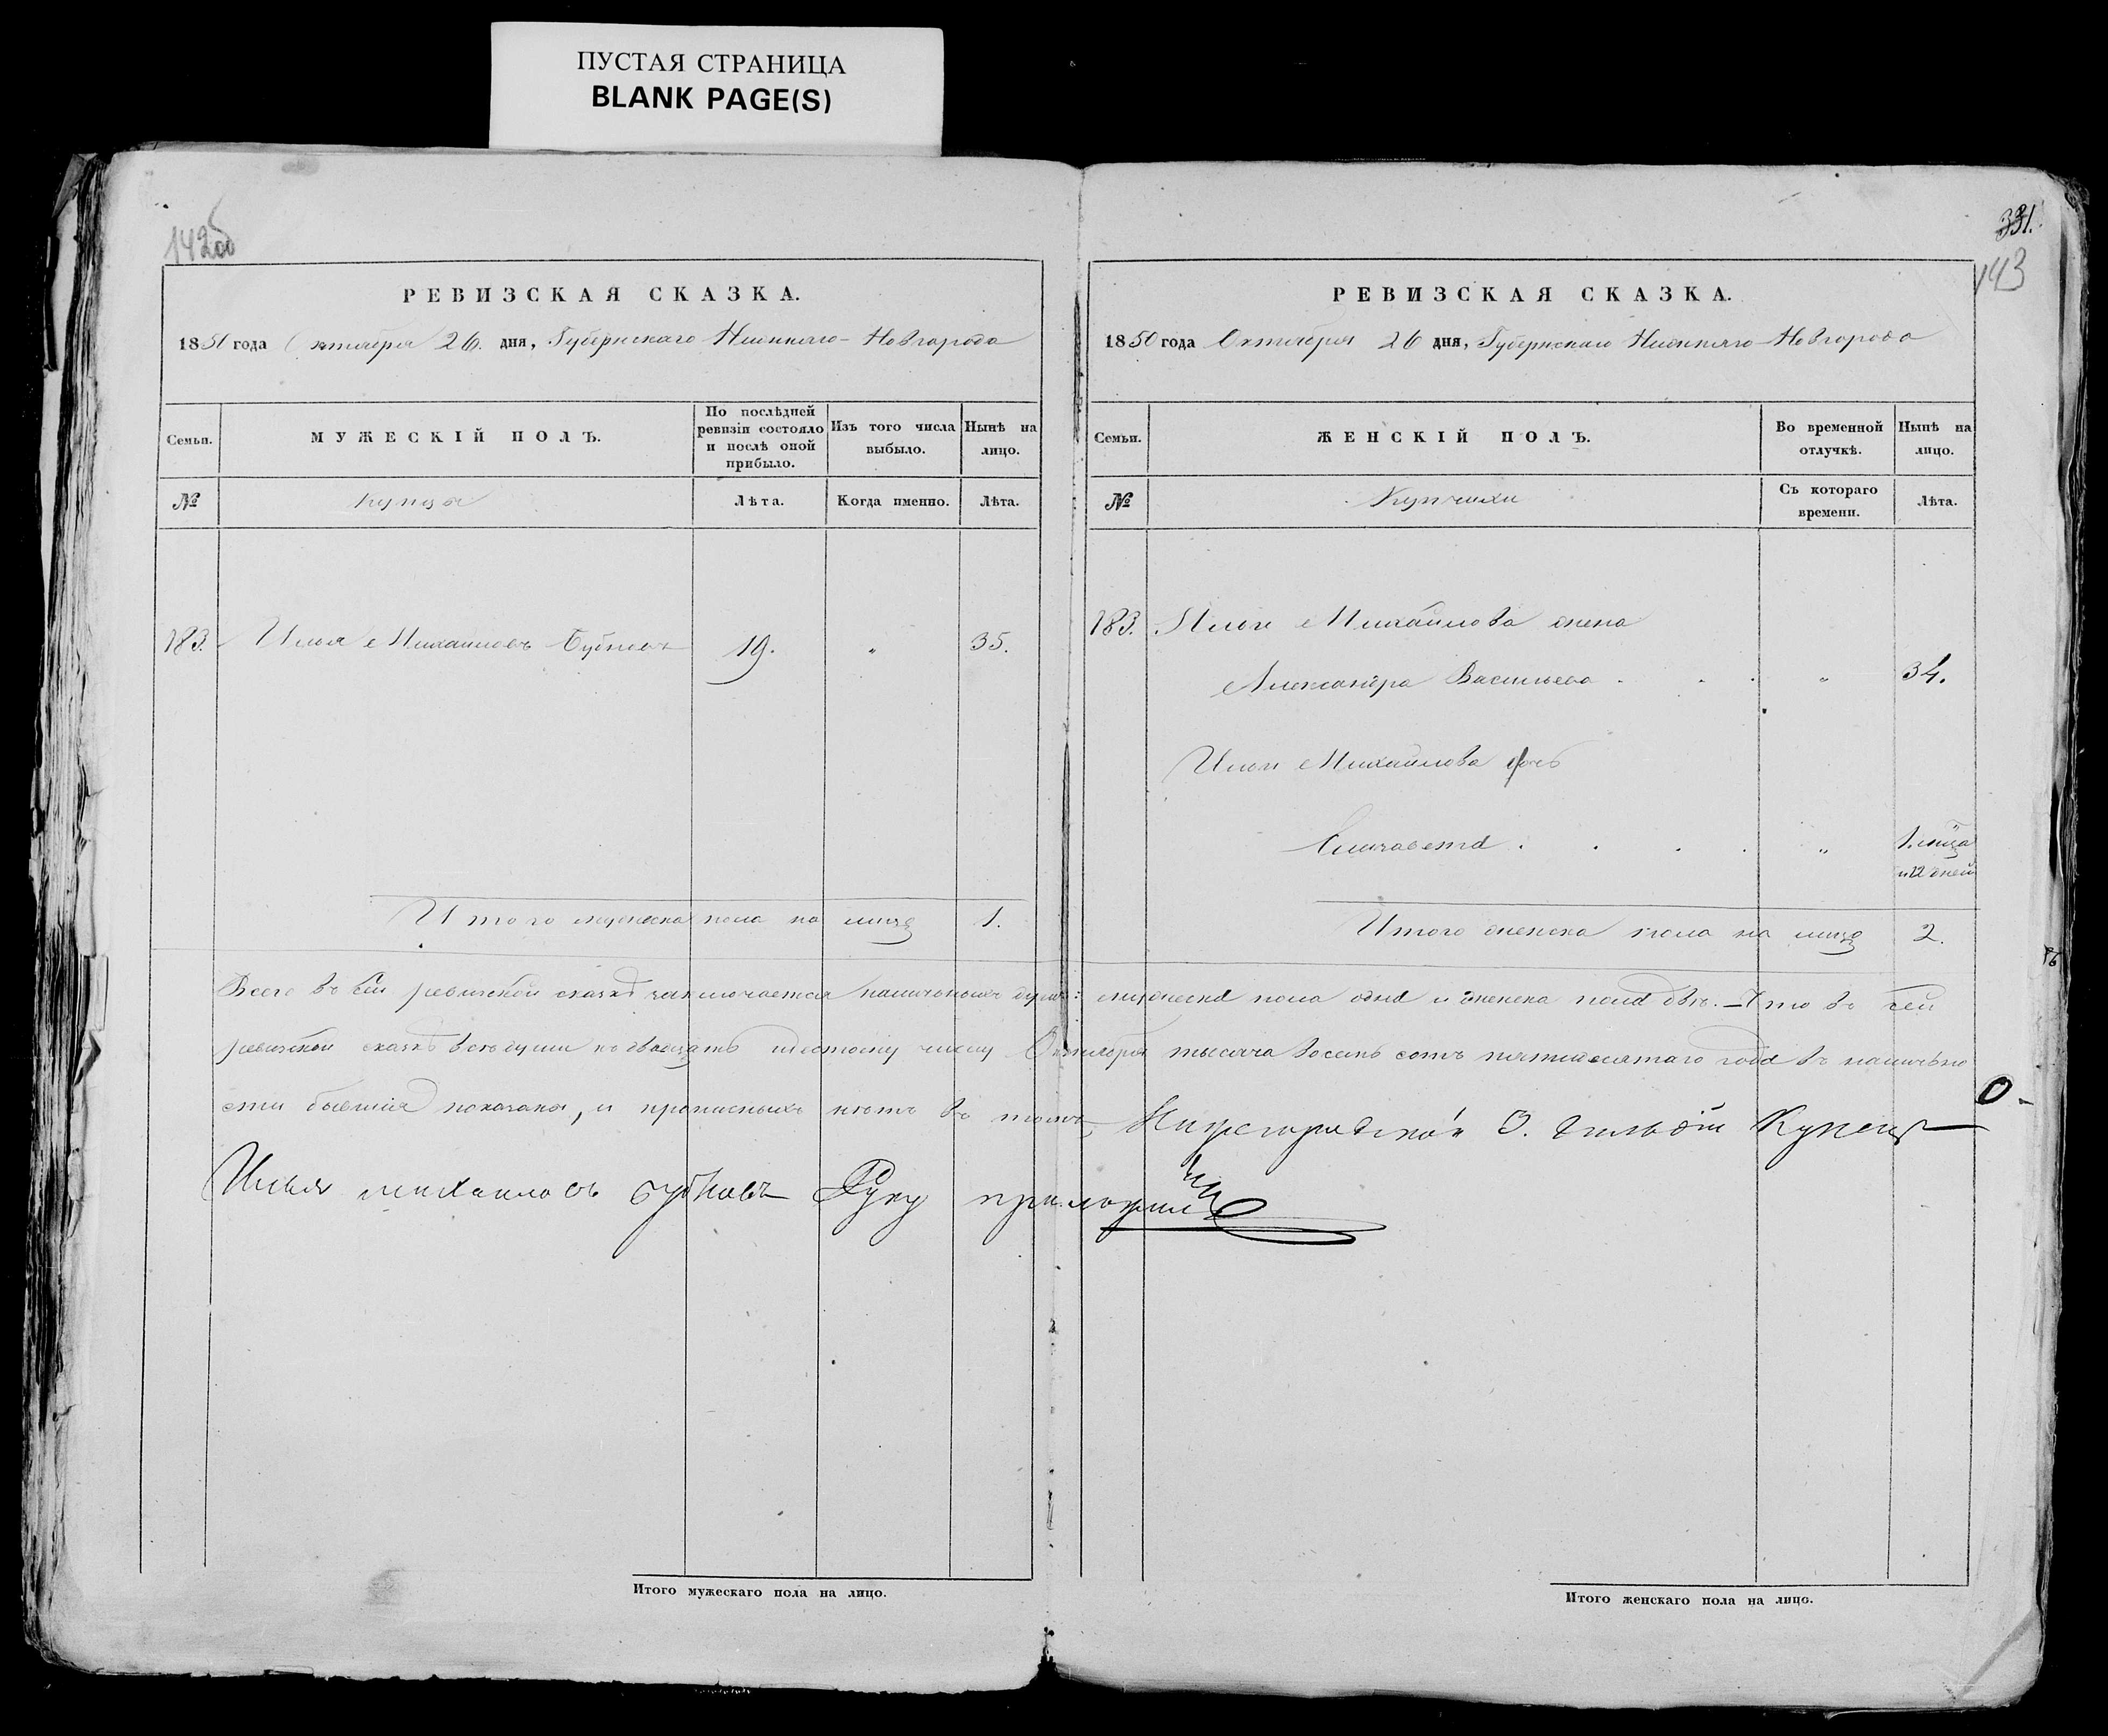 ПУСТАЯ СТРАНИЦА
BLANK PAGE(S)
142об
РЕВИЗСКАЯ СКАЗКА.
1850 года Октября 26. дня, Губернскаго Нижняго-Новгорода
Семьи.
МУЖЕСКІЙ ПОЛЪ.
По послѣдней ревизіи состояло и послѣ оной прибыло.
Изъ того числа выбыло.
Нынѣ на лицо.
№
Купцы
Лѣта.
Когда именно.
Лѣта.
183. Илья Михайловъ Бубновъ 19. „ 35.
Итого мужеска пола на лицо 1.
331.
143
РЕВИЗСКАЯ СКАЗКА.
1850 года Октября 26 дня, Губернскаго Нижняго-Новгорода
Семьи.
ЖЕНСКІЙ ПОЛЪ.
Во временной отлучкѣ.
Нынѣ на лицо.
№
Купчихи
Съ котораго времени.
Лѣта.
183. Ильи Михайлова жена
Александра Васильева . . . „ 34.
Ильи Михайлова дочь
Елизавета . . . . „ 1. мѣца
и 12 дней
Итого женска пола на лицо 2.
Всего въ сей ревизской сказкѣ заключается наличныхъ душъ: мужеска пола одна и женска пола двѣ. — Что въ сей
ревизской сказкѣ всѣ души къ двадцать шестому числу Октября тысяча восемь сотъ пятидесятаго года въ наличьно
сти бывшія показаны, и прописныхъ нѣтъ въ томъ, Нижегородской 3. гильдіи Купецъ
Илья михаиловъ бубновъ Руку приложилъ
Итого мужескаго пола на лицо.
Итого женскаго пола на лицо.